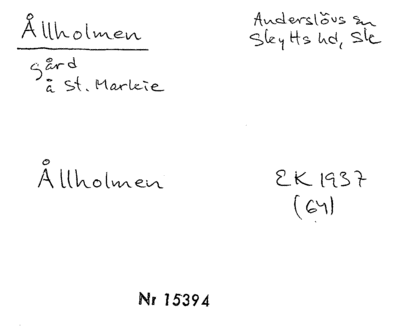 Ållholmen
gård
å St. Markie
Anderslövs sn
Skytts hd, Sk
Ållholmen
EK 1937
(64)
Nr 15394